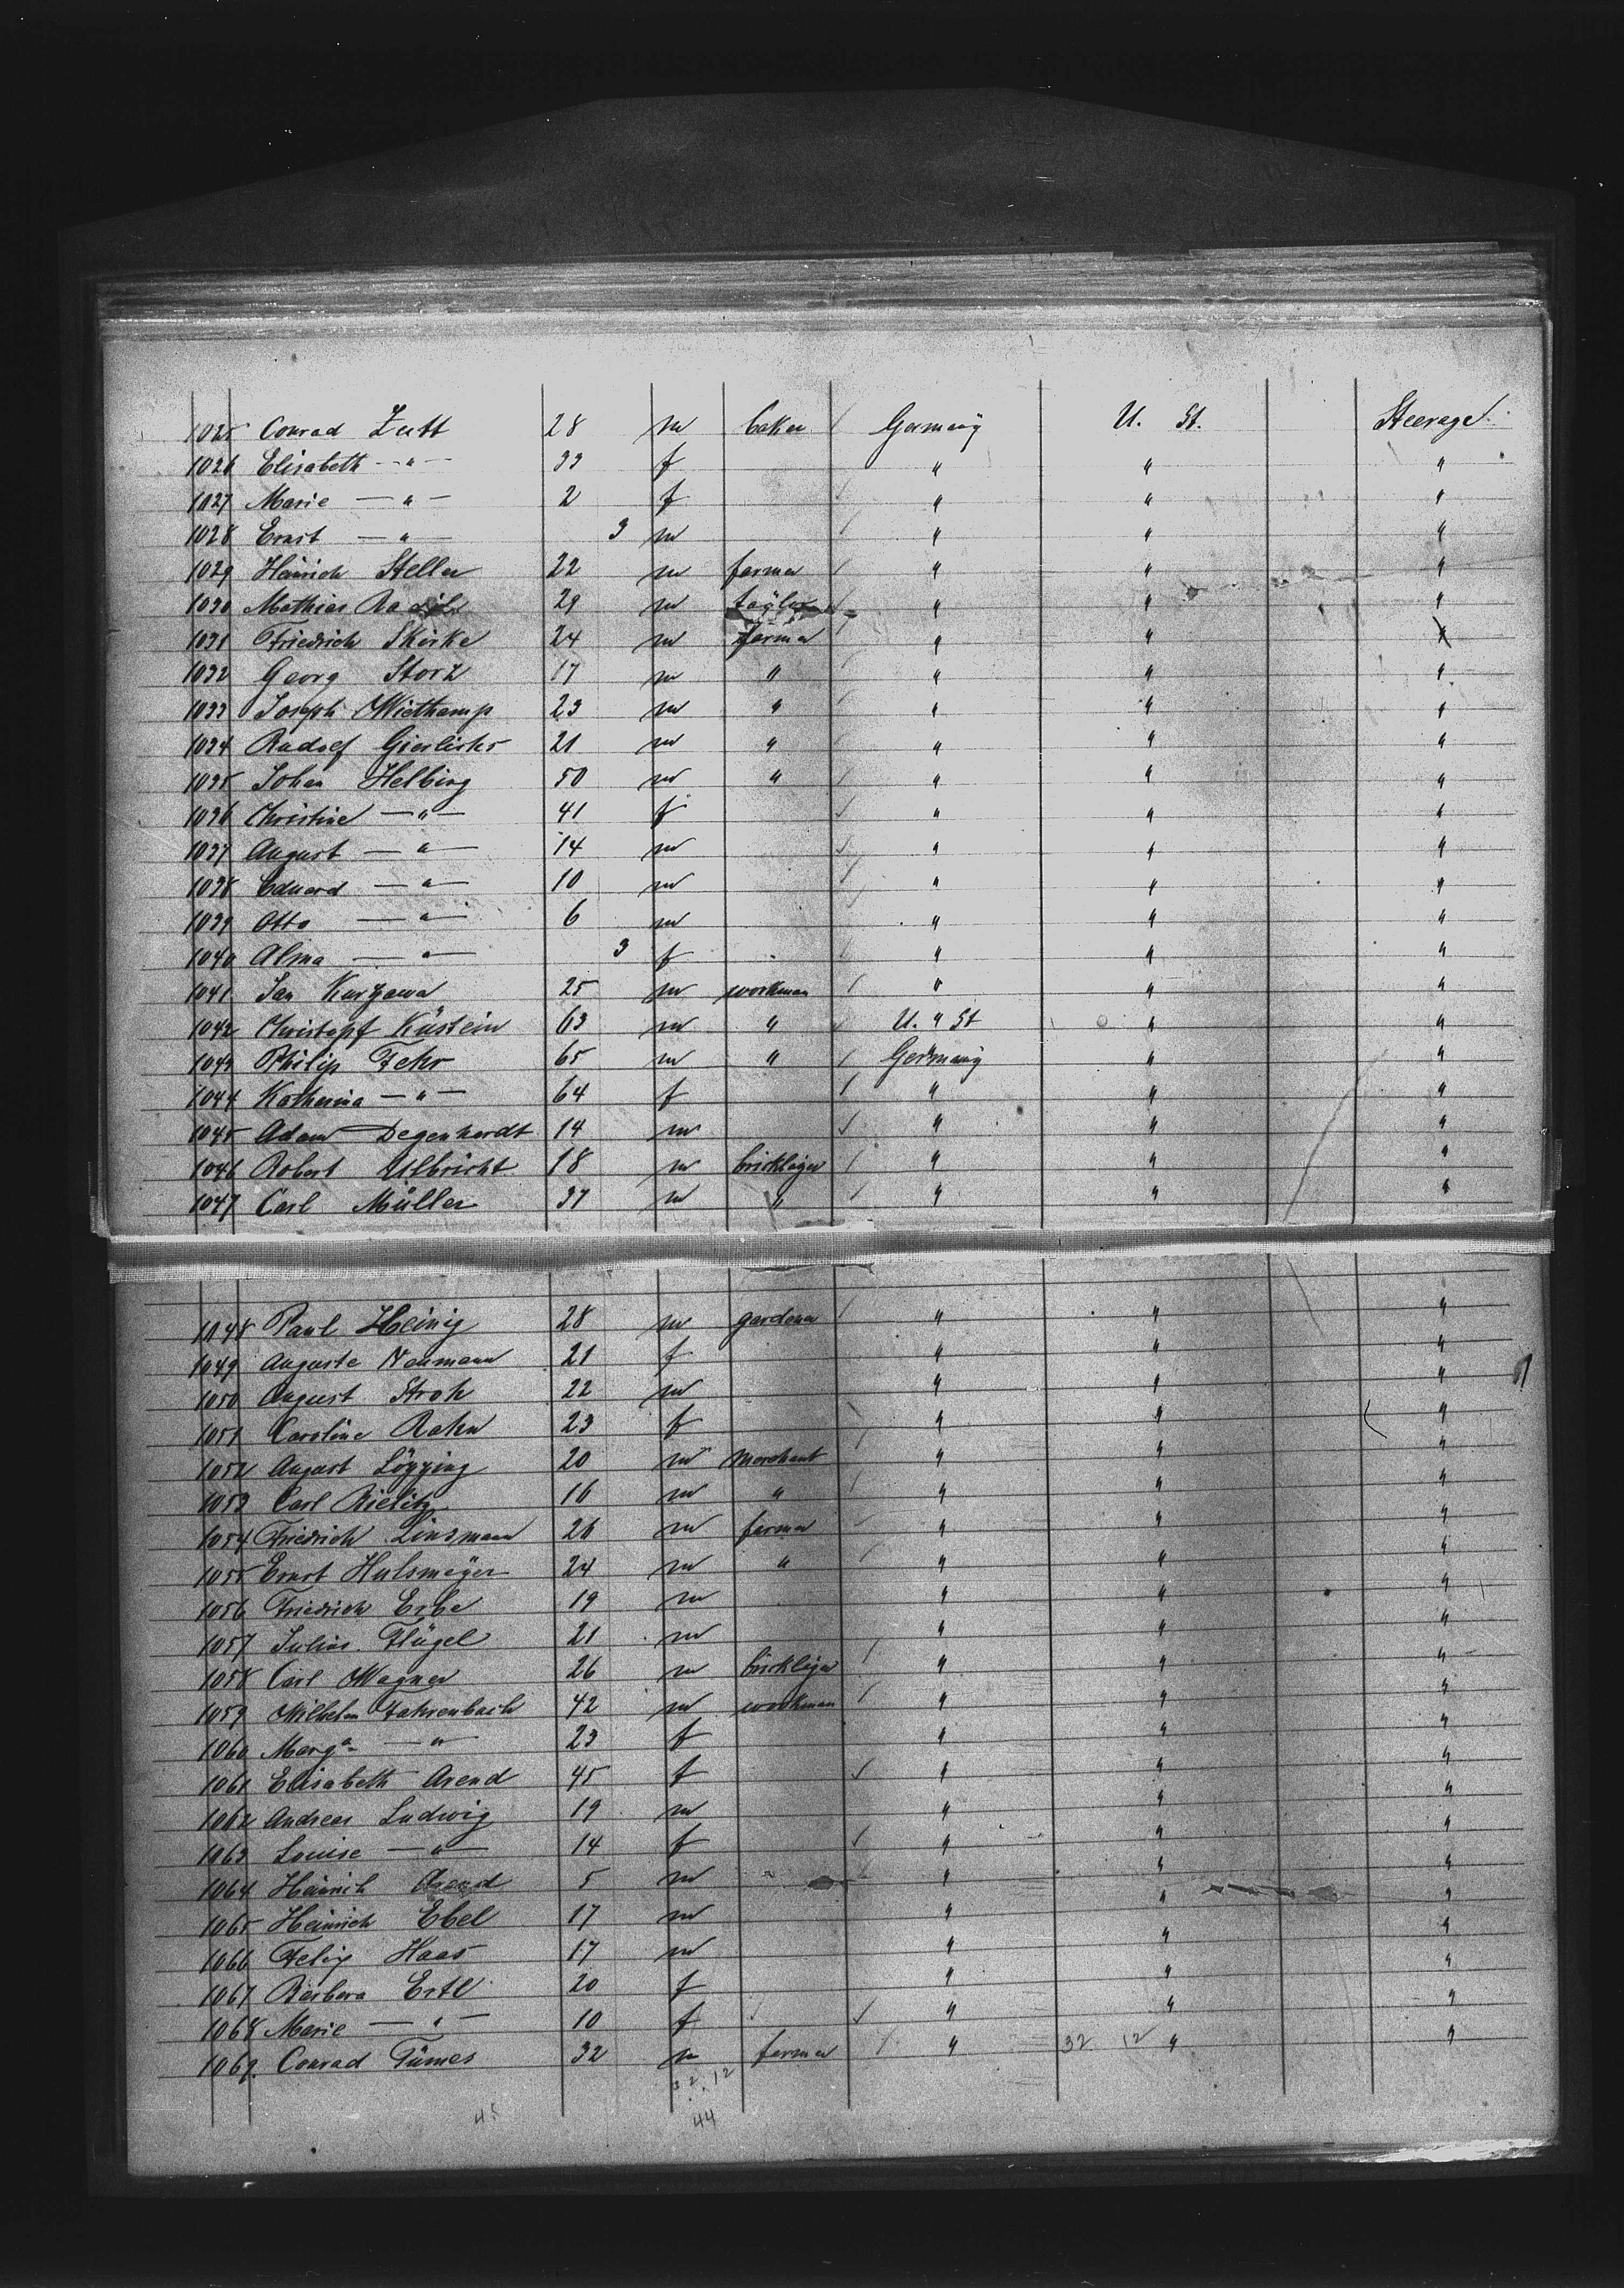 1025 Conrad Zutt 28 m baker Germany U. St. Steerage
1026 Elisabeth — " — 33 f " " "
1027 Marie — " — 2 f " " "
1028 Ernst — " — 3 m " " "
1029 Heinrich Steller 22 m farmer " " "
1030 Mathias 29 m " " "
1031 Friedrich Skirke 24 m farmer " " "
1032 Georg Storz 17 m " " " "
1033 Joseph Wiethamp 23 m " " " "
1034 Rudolf Gierlichs 21 m " " " "
1035 Johan Helbing 50 m " " " "
1036 Christine — " — 41 f " " "
1037 August — " — 14 m " " "
1038 Eduard — " — 10 m " " "
1039 Otto — " — 6 m " " "
1040 Alma — " — 3 f " " "
1041 Jan Kurzawa 25 m workman " " "
1042 Christopf Küstein 63 m " U. " St " "
1043 Philip Fehr 65 m " Germany " "
1044 Katharina — " — 64 f " " "
1045 Adam Degenhardt 14 m " " "
1046 Robert Ulbricht 18 m bricklayer " " "
1047 Carl Müller 37 m " " " "
1048 Paul Heinig 28 m gardener " " "
1049 Auguste Neumann 21 f " " "
1050 August Stroh 22 m " " "
1051 Caroline Rahn 23 f " " "
1052 August Löpping 20 m merchant " " "
1053 Carl Rielitz 16 m " " " "
1054 Friedrich Linsmann 26 m farmer " " "
1055 Ernst Hulsmeÿer 24 m " " " "
1056 Friedrich Erbe 19 m " " "
1057 Julius Flügel 21 m " " "
1058 Carl Wagner 26 m bricklayer " " "
1059 Wilhelm Fahrenbach 42 m workman " " "
1060 Marga — " — 23 f " " "
1061 Elisabeth Arend 45 f " " "
1062 Andreas Ludwig 19 m " " "
1063 Louise — " — 14 f " " "
1064 Heinrich Arend 5 m " " "
1065 Heinrich Ebel 17 m " " "
1066 Felix Haas 17 m " " "
1067 Barbara Ertl 20 f " " "
1068 Marie — " — 10 f " " "
1069. Conrad Tümes 32 m farmer " 32 12 " "
32 . 12
45 44